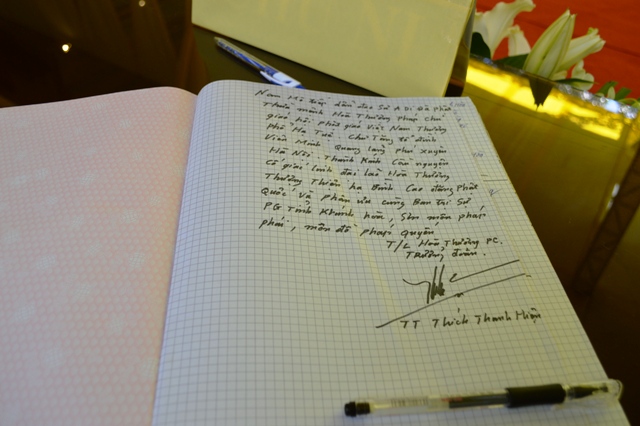 Nam Mô tiếp dẫn đạo Sư A Di Đà Phật
Thừa mệnh Hoà Thượng Pháp Chủ
giáo hội Phật giáo Việt Nam Thượng
phổ Hạ Tuệ. Chư Tăng tổ đình
Viên Minh Quang lãng phú xuyên
Hà Nội. Thành Kính Cầu nguyện
Cố giác linh đại lão Hoà Thượng
Thượng Thiện hạ Bình Cao đăng Phật
Quốc và phân ưu cùng Ban trị Sự
PG Tỉnh Khánh hòa, Sơn môn pháp
phái, môn đồ pháp quyến
T/L Hoà Thượng PC.
Trưởng đoàn.
TT Thích Thanh